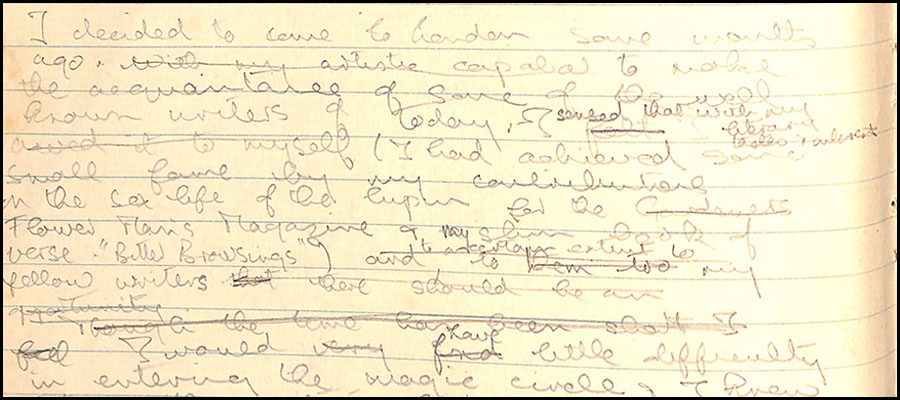 I decided to come to London some months
ago. with my artistic capaba to make
the acquaintance of some of the well
known writers of today, I sensed that with my
literary
owed it to myself (I had achieved some tastes & interests
small fame by my contributions
on the sex life of the lupin for the Gardeners
Flower Man's Magazine & my slim book of
verse "Bitter Browsings") and to a certain extent to
to them too my
fellow writers that there should be an
opportunity
Though the time has been short I
feel I would very find have little difficulty
in entering the magic circle, I knew